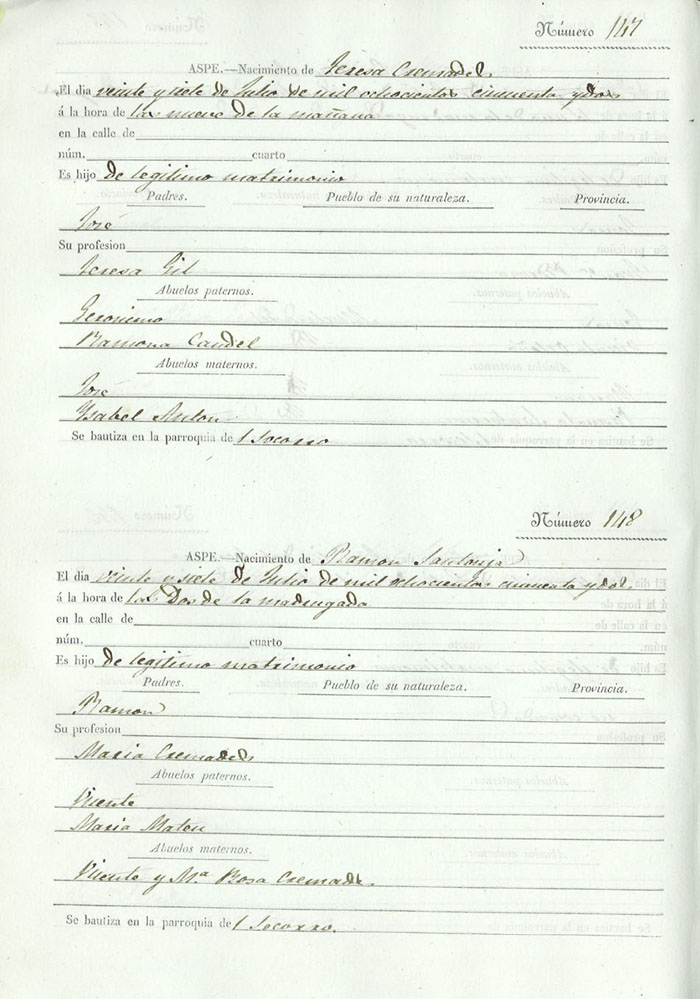 Número 147
ASPE.—Nacimiento de Teresa Cremades.
El dia veinte y siete de Julio de mil ochocientos cincuenta y dos
á la hora de las nueve de la mañana
en la calle de
núm. cuarto
Es hijo de legitimo matrimonio
Padres. Pueblo de su naturaleza. Provincia.
José
Su profesion
Teresa Gil
Abuelos paternos.
Geronimo
Ramona Caudel
Abuelos maternos.
José
Ysabel Anton
Se bautiza en la parroquia de l Socorro
Número 148
ASPE.—Nacimiento de Ramon Santonja
El dia veinte y siete de Julio de mil ochocientos cincuenta y dos.
á la hora de las Dos de la madrugada
en la calle de
núm. cuarto
Es hijo de legitimo matrimonio
Padres. Pueblo de su naturaleza. Provincia.
Ramon
Su profesion
Maria Cremades
Abuelos paternos.
Vicente
Maria Mateu
Abuelos maternos.
Vicente y Mª Rosa Cremades.
Se bautiza en la parroquia de l Socorro.